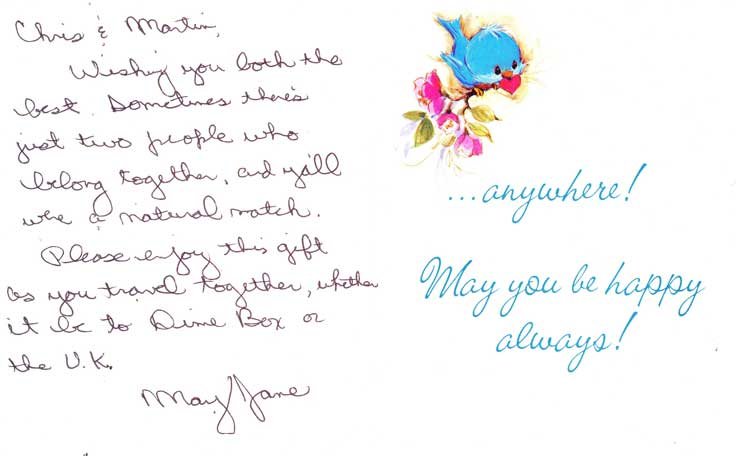 Chris & Martin,
Wishing you both the
best. Sometimes there's
just two people who
belong together, and y'all
were a natural match.
Please enjoy this gift
as you travel together, whether
it be to Dime Box or
the U.K.
Mary Jane
...anywhere!
May you be happy
always!